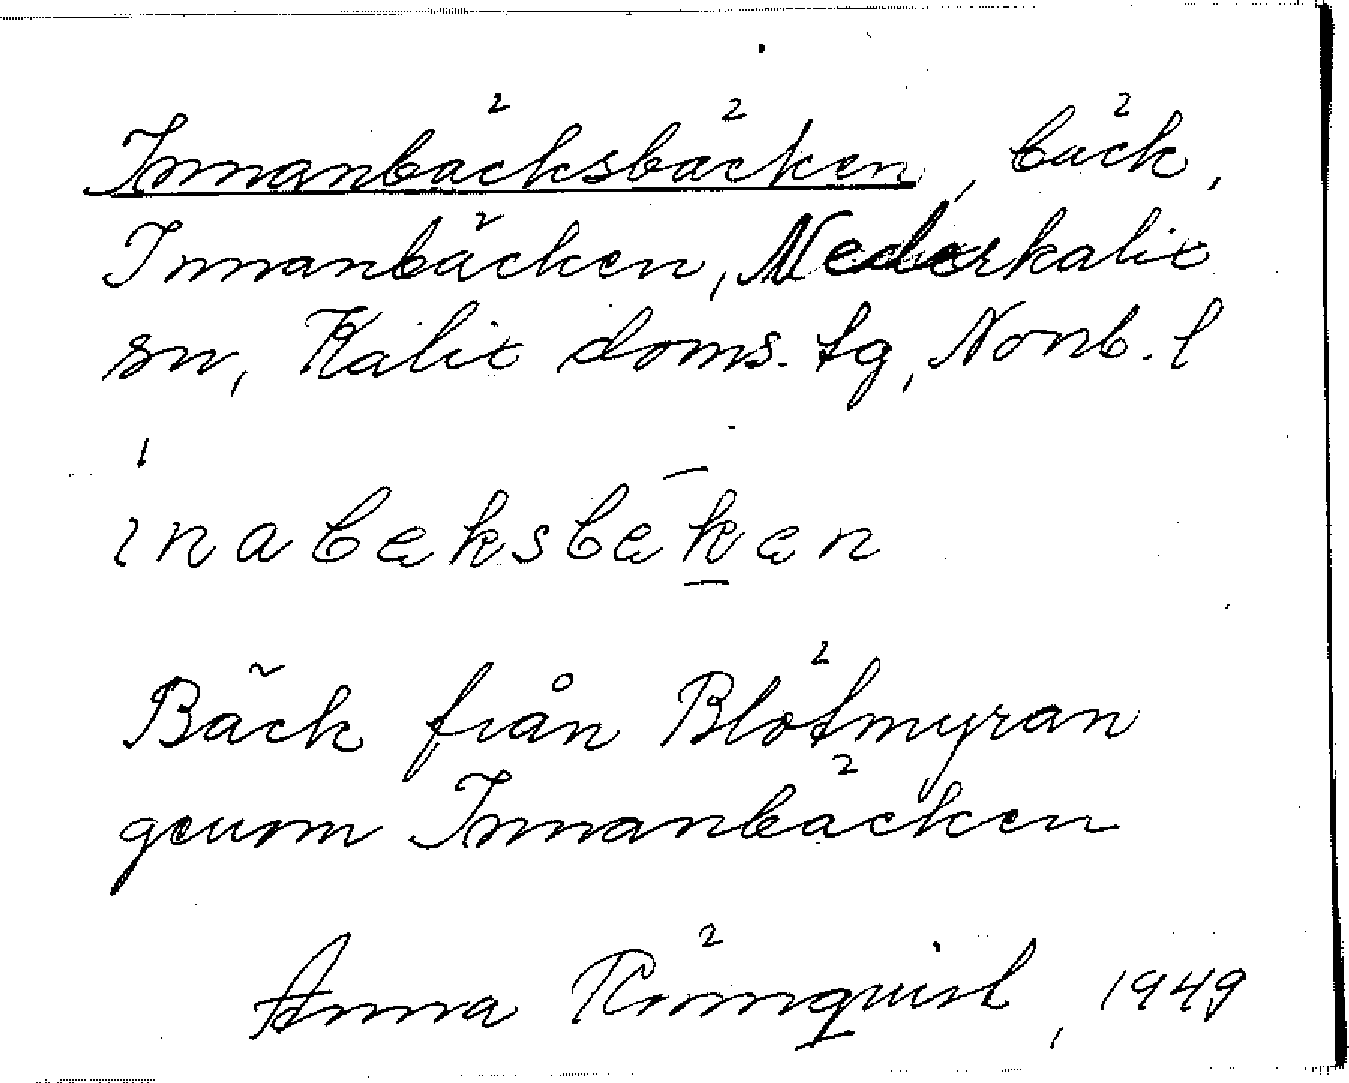 Innanbäcksbäcken, bäck,
Innanbäcken, Nederkalix
sn, Kalix doms. tg, Norrb. l
ınabæksbǣkæn
Bäck från Blötmyran
genom Innanbäcken
Anna Römquist, 1949